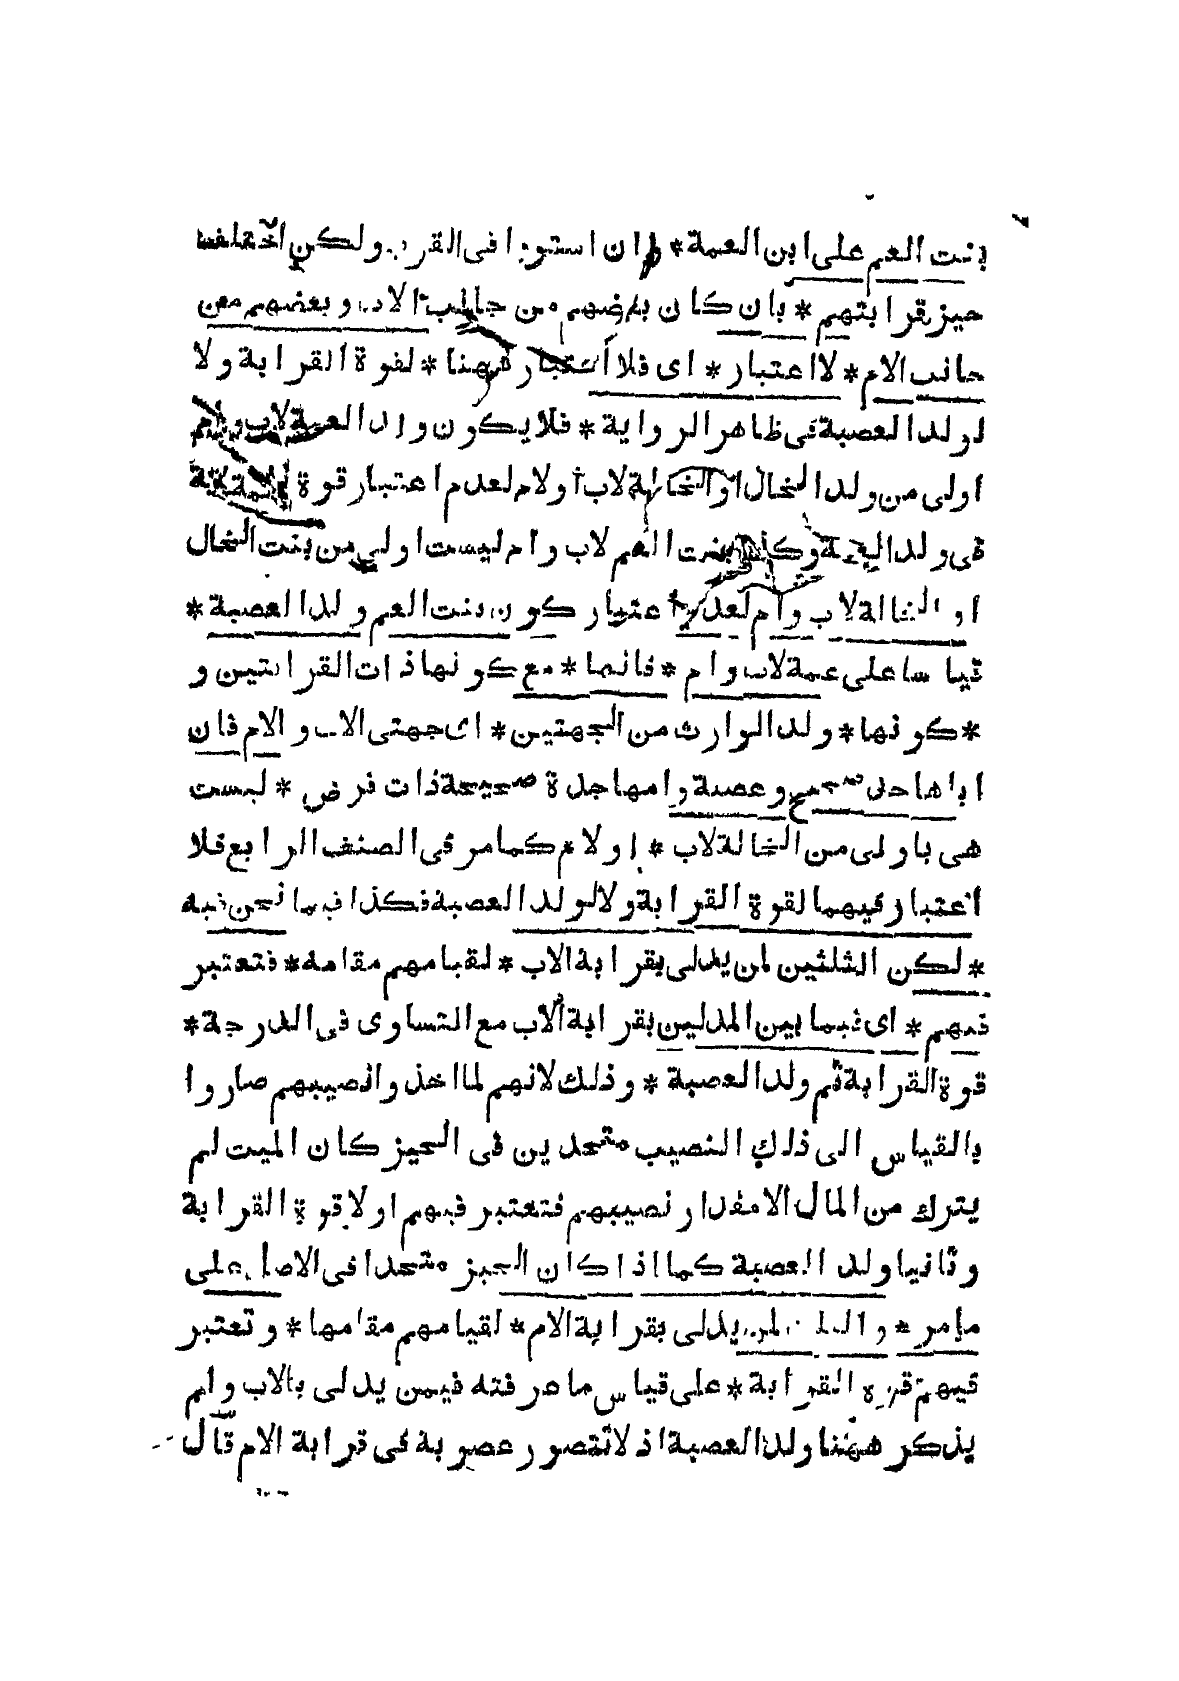 بنت العم على ابن العمة * وان استووا فى القرب ولكن اختلف
حيز قرابتهم * بان كان بعضهم من جانب الاب وبعضهم من
جانب الام * لا اعتبار * اى فلا اعتبار ههنا * لقوة القرابة ولا
لولد العصبة فى ظاهر الرواية * فلا يكون ولد العمة لاب وام
اولى من ولد الخال او الخالة لاب او لام لعدم اعتبار قوة
فى ولد العمة وكذا بنت العم لاب وام ليست اولى من بنت الخال
او الخالة لاب وام لعدم اعتبار كون بنت العم ولد العصبة *
قياسا على عمة لاب وام * فانها * مع كونها ذات القرابتين و
* كونها * ولد الوارث من الجهتين * اى جهتى الاب والام فان
اباها جد صحيح وعصبة وامها جدة صحيحة ذات فرض * ليست
هى باولى من الخالة لاب * او لام كما مر فى الصنف الرابع فلا
اعتبار فيهما لقوة القرابة ولا لولد العصبة فكذا فيما نحن فيه
* لكن الثلثين لمن يدلى بقرابة الاب * لقيامهم مقامه * فتعتبر
فيهم * اى فيما بين المدلين بقرابة الاب مع التساوى فى الدرجة *
قوة القرابة ثم ولد العصبة * وذلك لانهم لما اخذوا نصيبهم صاروا
بالقياس الى ذلك النصيب متحدين فى الحيز كان الميت لم
يترك من المال الا مقدار نصيبهم فتعتبر فيهم اولا قوة القرابة
وثانيا ولد العصبة كما اذا كان الحيز متحدا فى الاصل على
مامر * والثلث لمن يدلى بقرابة الام * لقيامهم مقامها * وتعتبر
فيهم قوة القرابة * على قياس ما عرفته فيمن يدلى بالاب ولم
يذكر ههنا ولد العصبة اذ لا تتصور عصوبة فى قرابة الام قال